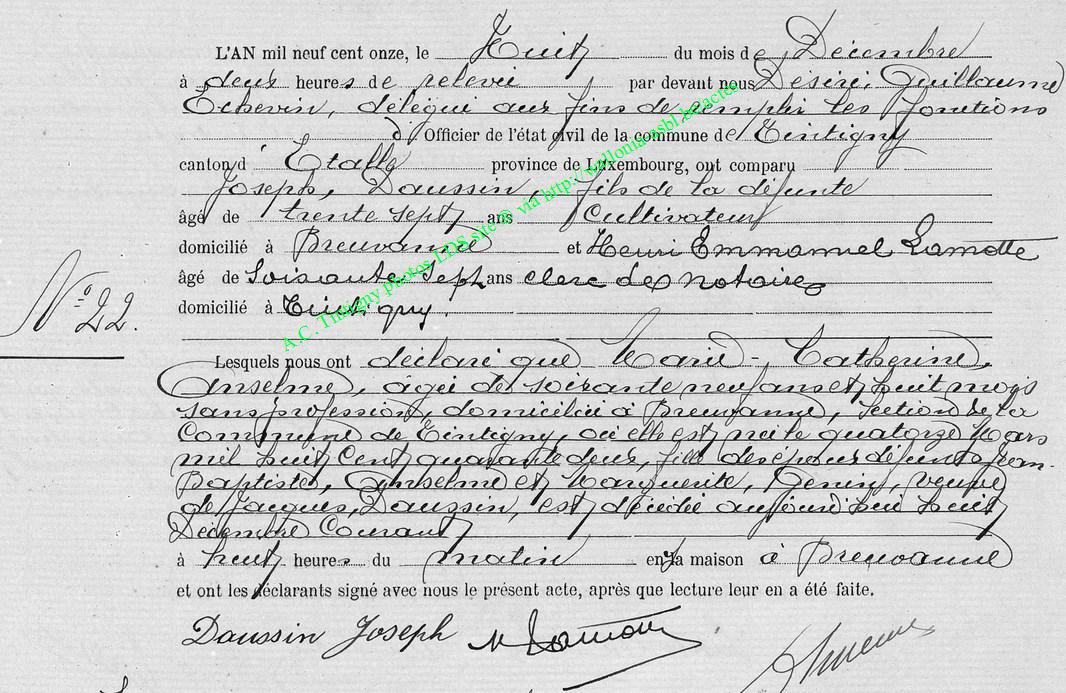 L'AN mil neuf cent onze, le Huit du mois de Décembre
à deux heures de relevée par devant nous Désiré, Guillaume
Echevin, délégué aux fins de remplir les fonctions
d' Officier de l'état civil de la commune de Tintigny
canton d' Etalle province de Luxembourg, ont comparu
Joseph, Daussin, fils de la défunte
âgé de trente sept ans Cultivateur
domicilié à Breuvanne et Henri Emmanuel Lamotte
âgé de Soixante Sept ans clerc de notaire
domicilié à Tintigny.
N° 22.
Lesquels nous ont déclaré que Marie - Catherine,
Anselme, âgée de soixante neuf ans et huit mois
sans profession, domiciliée à Breuvanne, Section de la
Commune de Tintigny, où elle est née le quatorze Mars
mil huit cent quarante deux, fille des époux défunts Jean-
Baptiste, Anselme et Marguerite, Henin, veuve
de Jacques, Daussin, est décédée aujourd'hui huit
Décembre Courant
à huit heures du matin en sa maison à Breuvanne
et ont les déclarants signé avec nous le présent acte, après que lecture leur en a été faite.
Daussin Joseph
A.C. Tintigny photos LDS site © via http://wallonia.asbl.be/actes